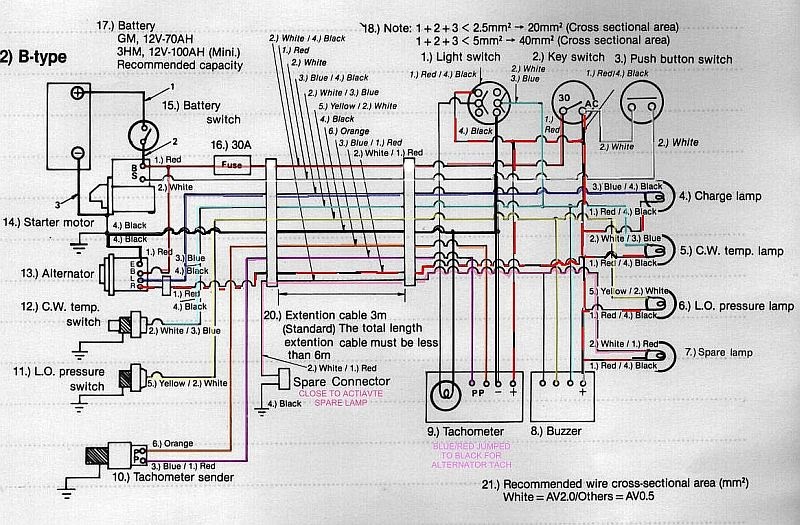 2) B-type
17.) Battery
GM, 12V-70AH
3HM, 12V-100AH (Mini.)
Recommended capacity
18.) Note: 1 + 2 + 3 < 2.5mm² → 20mm² (Cross sectional area)
1 + 2 + 3 < 5mm² → 40mm² (Cross sectional area)
2.) White / 4.) Black
1.) Red
2.) White
3.) Blue / 4.) Black
2.) White / 3.) Blue
5.) Yellow / 2.) White
4.) Black
6.) Orange
3.) Blue / 1.) Red
2.) White / 1.) Red
1.) Light switch
2.) Key switch
3.) Push button switch
1.) Red / 4.) Black
2.) White
3.) Blue
1.) Red/4.) Black
30
AC
4.) Black
1.)
Red
2.) White
2.) White
1
15.) Battery
switch
2
16.) 30A
Fuse
1.) Red
B
S
2.) White
3
14.) Starter motor
4.) Black
4.) Black
3.) Blue / 4.) Black
4.) Charge lamp
1.) Red / 4.) Black
2.) White / 3.) Blue
5.) C.W. temp. lamp
1.) Red / 4.) Black
5.) Yellow / 2.) White
6.) L.O. pressure lamp
1.) Red / 4.) Black
2.) White / 1.) Red
7.) Spare lamp
1.) Red / 4.) Black
13.) Alternator
E
B
L
R
1.) Red
3.) Blue
4.) Black
1.) Red
4.) Black
12.) C.W. temp.
switch
2.) White / 3.) Blue
11.) L.O. pressure
switch
5.) Yellow / 2.) White
20.) Extention cable 3m
(Standard) The total length
extention cable must be less
than 6m
2.) White / 1.) Red
Spare Connector
CLOSE TO ACTIAVTE
SPARE LAMP
4.) Black
6.) Orange
P
P
3.) Blue / 1.) Red
10.) Tachometer sender
P P − +
9.) Tachometer
BLUE/RED JUMPED
TO BLACK FOR
ALTERNATOR TACH
+
8.) Buzzer
21.) Recommended wire cross-sectional area (mm²)
White = AV2.0/Others = AV0.5